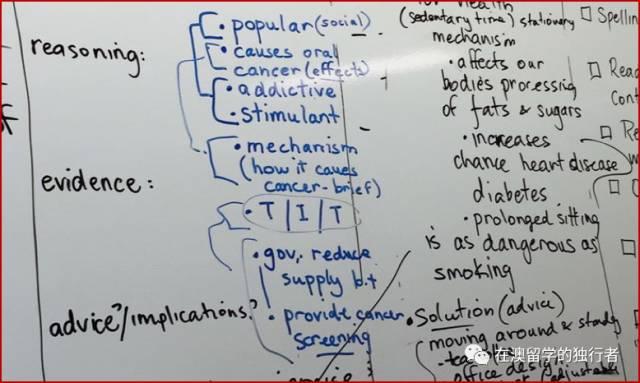 reasoning:
evidence:
advice?/implications?
• popular (social)
• causes oral
cancer (effects)
• addictive
• stimulant
• mechanism
(how it caues
cancer - brief)
• T | I | T
• gov. reduce
supply b.t
• provide cancer
screening
(sedentary time) stationary
mechanism
• affects our
bodies processing
of fats & sugars
• increases
chance heart disease
diabetes
• prolonged sitting
is as dangerous as
smoking
• Solution (advice)
moving around &
office design
Spelling
在澳留学的独行者